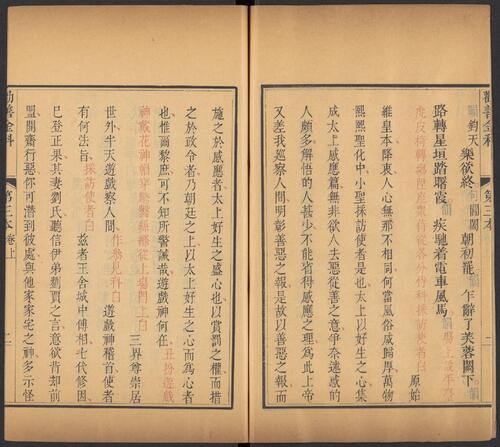 勸善金科
第三本
鈞天樂欲終句閶闔朝初罷韻乍辭了芙蓉闕下韻
路轉星垣踏曙霞韻疾馳着電車風馬韻
原始
維皇本降衷人心無那不相同何當風俗咸歸厚萬物
熙熙聖化中小聖採訪使者是也太上以好生之心集
成太上感應篇無非欲人去惡從善之意爭奈迷惑的
人頗多解悟的人甚少不能省得感應之理爲此上帝
又差我巡察人間明彰善惡之報是故以善惡之報而
施之於感應者太上好生之盛心也以賞罰之權而措
之於政令者乃朝廷之上以太上好生之心而爲心者
也惟爾黎庶可不知所警誡哉遊戲神何在丑扮遊戲
神
從上場門上白三界尊崇居
世外半天遊戲察人間作參見科白遊戲神稽首使者
有何法旨採訪使者白茲者王舍城中傅相七代修因
已登正果其妻劉氏聽信伊弟劉賈之言意欲肯却前
盟開齋行惡你可潛到彼處與他家家宅之神多示怪
勸善金科
第三本卷上
二